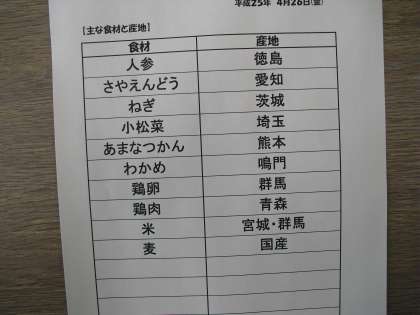 平成25年 4月26日(金)
[主な食材と産地]
食材 産地
人参 徳島
さやえんどう 愛知
ねぎ 茨城
小松菜 埼玉
あまなつかん 熊本
わかめ 鳴門
鶏卵 群馬
鶏肉 青森
米 宮城・群馬
麦 国産